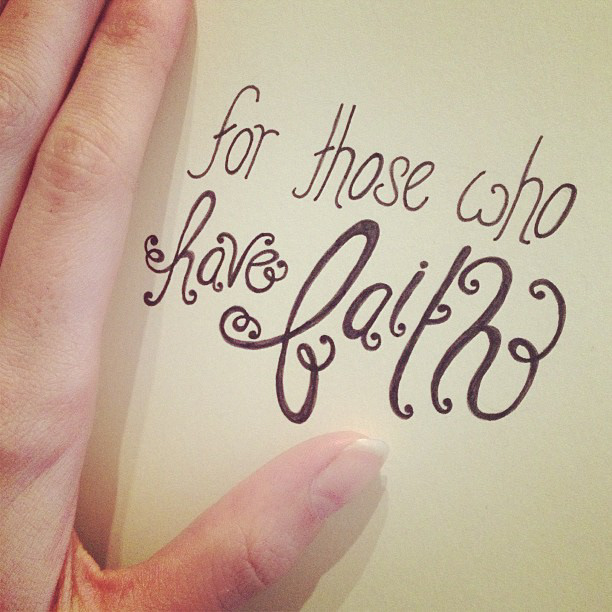 for those who
have faith